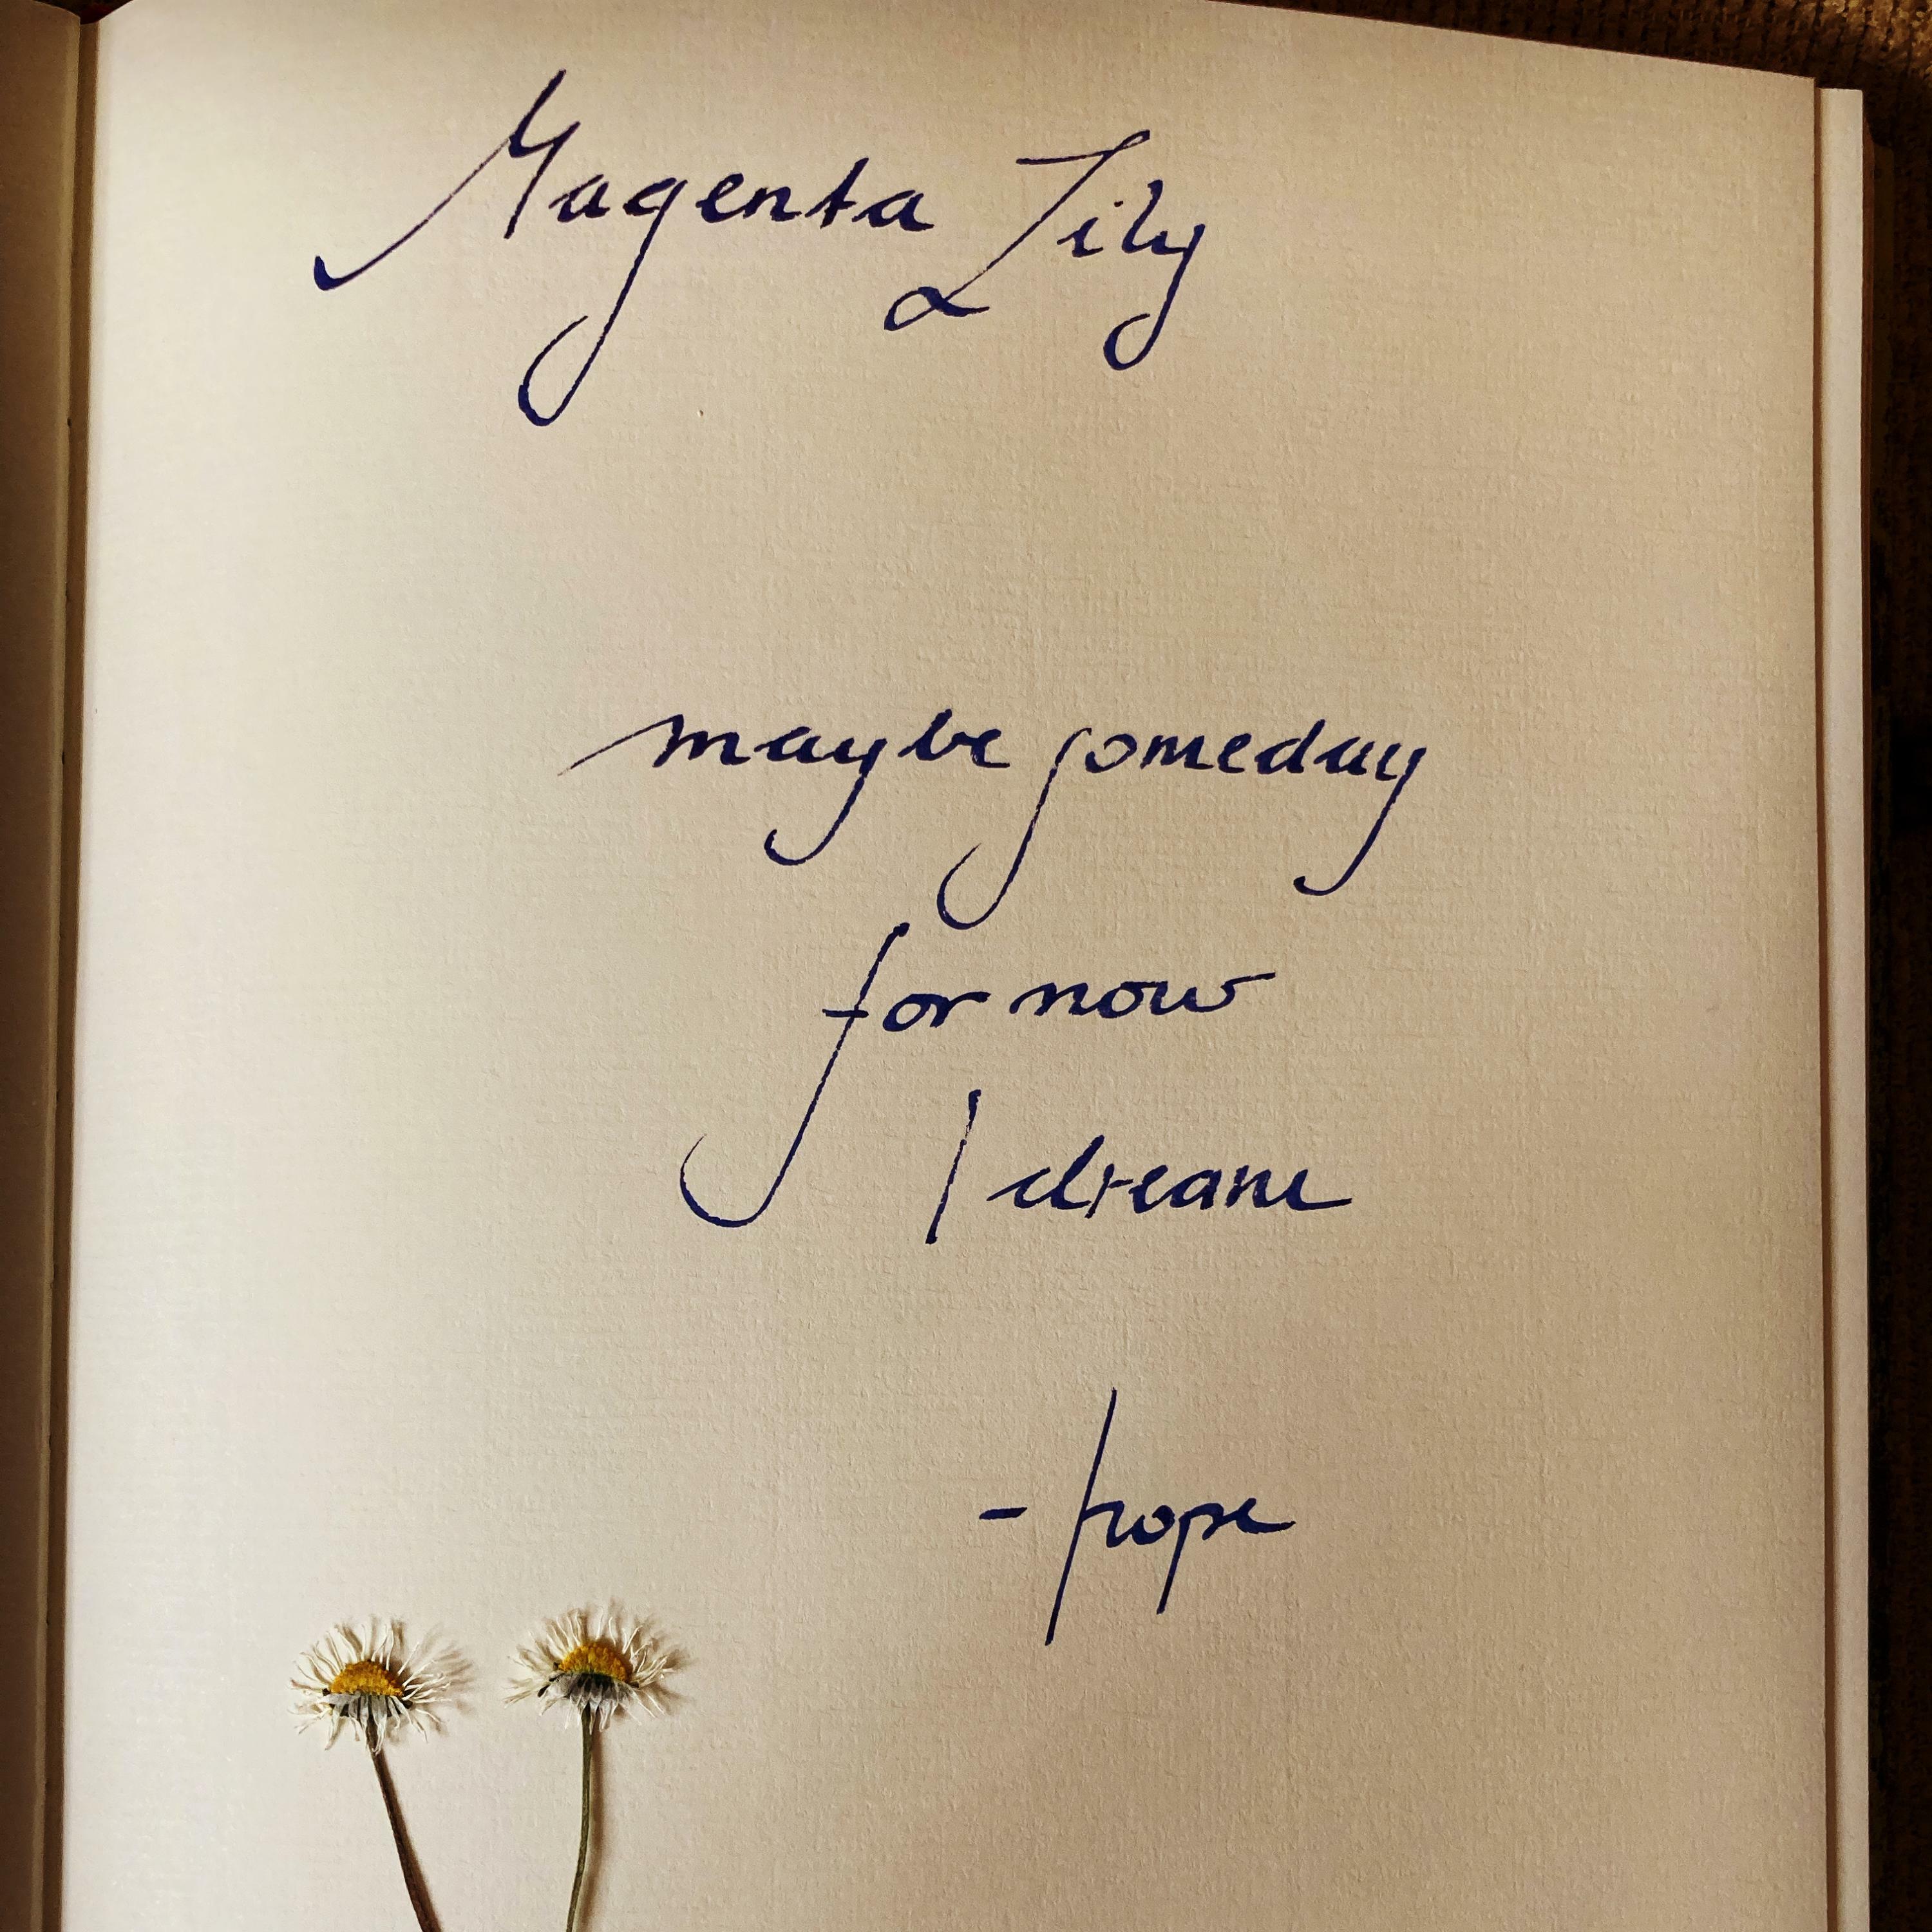 Magenta Lily
maybe someday
for now
I dream
- hope